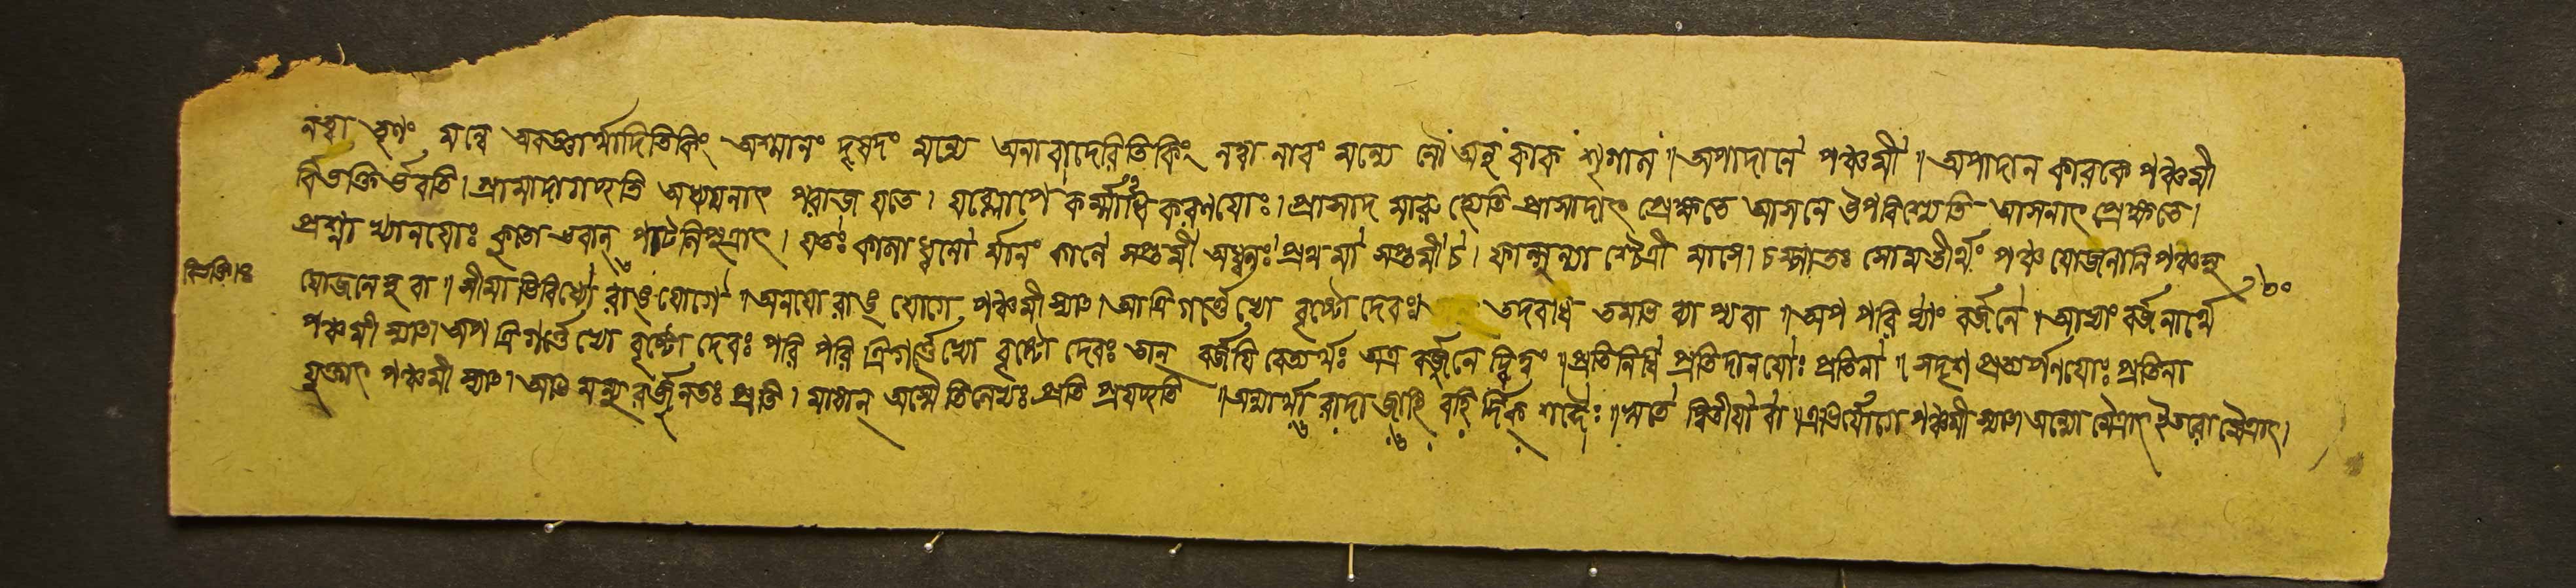 নত্বা তৃণং মন্যে অবজ্ঞার্থাদিতিকিং অশ্মানং দৃষদং মন্যে অনাবাদেরিতিকিং নত্বা নাবং মন্যে নৌ অন্ন কাক শৃগাল ॥ অপাদানে পঞ্চমী ॥ অপাদান কারকে পঞ্চমী
র্বিভক্তির্ভবতি । গ্রামাদাগচ্ছতি অধ্যয়নাৎ পরাজয়তে । যল্লোপে কর্ম্মাধিকরণয়োঃ । প্রাসাদ মারুহ্যেতি প্রাসাদাৎ প্রেক্ষতে আসনে উপবিশ্যেতি আসনাৎ প্রেক্ষতে ।
প্রশ্না খ্যানয়োঃ কুতো ভবান্ পাটলিপুত্রাৎ । যতঃ কালাধ্বনো র্মানং কালে সপ্তমী অধ্বনঃ প্রথমা সপ্তমী চ । ফাল্গুন্যা শ্চৈত্রী মাসে । সোমতীর্থং পঞ্চ যোজনানি পঞ্চসু
যোজনেষু বা ॥ সীমা ভিবিধ্যো রাঙ্ যোগে ॥ অনয়ো রাঙ্ যোগে পঞ্চমী স্যাৎ । আত্রিগর্ত্তেভ্যো বৃষ্টো দেবঃ তদবধি তমভি ব্যাপ্যবা ॥ অপ পরি ভ্যাং বর্জনে । আভ্যাং বর্জনার্থে
পঞ্চমী স্যাৎ । অপ ত্রিগর্ত্তেভ্যো বৃষ্টো দেবঃ পরি পরি ত্রিগর্ত্তেভ্যো বৃষ্টো দেবঃ তান্ বর্জয়ি ত্বেত্যর্থঃ অত্র বর্জনে দ্বিত্বং ॥ প্রতিনিধি প্রতিদানয়োঃ প্রতিনা ॥ সদৃশ প্রত্যর্পণয়োঃ প্রতিনা
যুক্তাৎ পঞ্চমী স্যাৎ । অভিমন্যু রর্জ্জুনতঃ প্রতি । মাষান্ অস্মৈ তিলেভ্যঃ প্রতি প্রযচ্ছতি ॥ অন্যার্থা রাদা জাহি বহি র্দিক্ শব্দৈঃ ॥ ঋতে দ্বিতীয়া বা ॥ এভির্যোগে পঞ্চমী স্যাৎ অন্যো মৈত্রাৎ ইতরো মৈত্রাৎ ।